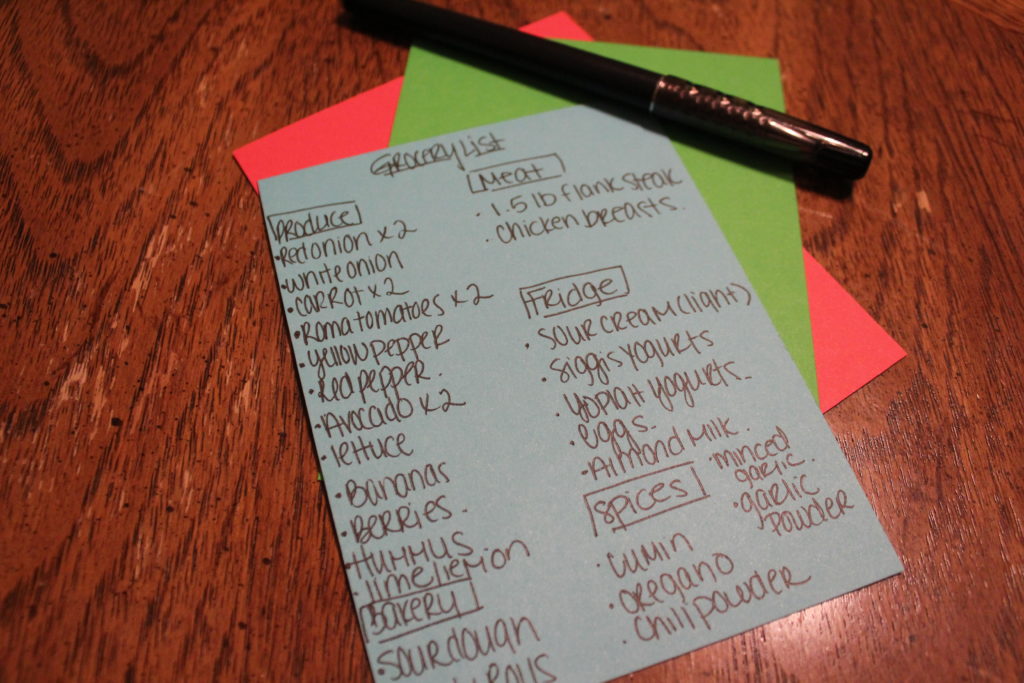 Grocery List
Produce
• Red onion x 2
• white onion
• carrot x 2
• Roma tomatoes x 2
• yellow pepper
• Red pepper.
• Avocado x 2
• lettuce
• Bananas
• Berries.
• Hummus
• lime lemon
Bakery
• sourdough
rolls
Meat
• 1.5 lb flank steak
• chicken breasts.
Fridge
• sour cream (light)
• siggis yogurts
• yoplait yogurts.
• eggs.
• Almond Milk.
spices
• cumin
• oregano
• chili powder
minced
garlic.
• garlic
powder